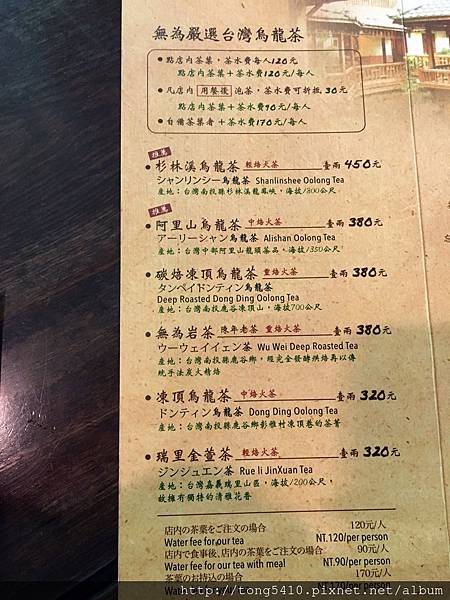 無為嚴選台灣烏龍茶
● 點店內茶葉，茶水費每人120元
點店內茶葉＋茶水費120元/每人
● 凡店內 用餐後 泡茶，茶水費可折抵30元
點店內茶葉＋茶水費90元/每人
● 自備茶葉者＋茶水費170元/每人
推薦
● 杉林溪烏龍茶 輕焙火茶 臺兩 450元
シャンリンシー烏龍茶 Shanlinshee Oolong Tea
產地：台灣南投縣杉林溪龍鳳峽，海拔1800公尺
推薦
● 阿里山烏龍茶 中焙火茶 臺兩 380元
アーリーシャン烏龍茶 Alishan Oolong Tea
產地：台灣中部阿里山龍頭茶品，海拔1350公尺
● 碳焙凍頂烏龍茶 重焙火茶 臺兩 380元
タンペイドンティン烏龍茶
Deep Roasted Dong Ding Oolong Tea
產地：台灣南投鹿谷凍頂山，海拔700公尺
● 無為岩茶 陳年老茶 重焙火茶 臺兩 380元
ウーウェイイェン茶 Wu Wei Deep Roasted Tea
產地：台灣南投縣鹿谷鄉，經完全發酵烘焙再以傳
統手法炭火精焙
● 凍頂烏龍茶 中焙火茶 臺兩 320元
ドンティン烏龍茶 Dong Ding Oolong Tea
產地：台灣南投縣鹿谷鄉彰雅村凍頂巷的茶菁
● 瑞里金萱茶 輕焙火茶 臺兩 320元
ジンジュエン茶 Rue li JinXuan Tea
產地：台灣嘉義瑞里山區，海拔1200公尺，
故擁有獨特的清雅花香
店内の茶葉をご注文の場合 120元/人
Water fee for our tea NT.120/per person
店内で食事後、店内の茶葉をご注文の場合 90元/人
Water fee for our tea with meal NT.90/per person
茶葉のお持込の場合 170元/人
NT.170/per person
http://tong5410.pixnet.net/album